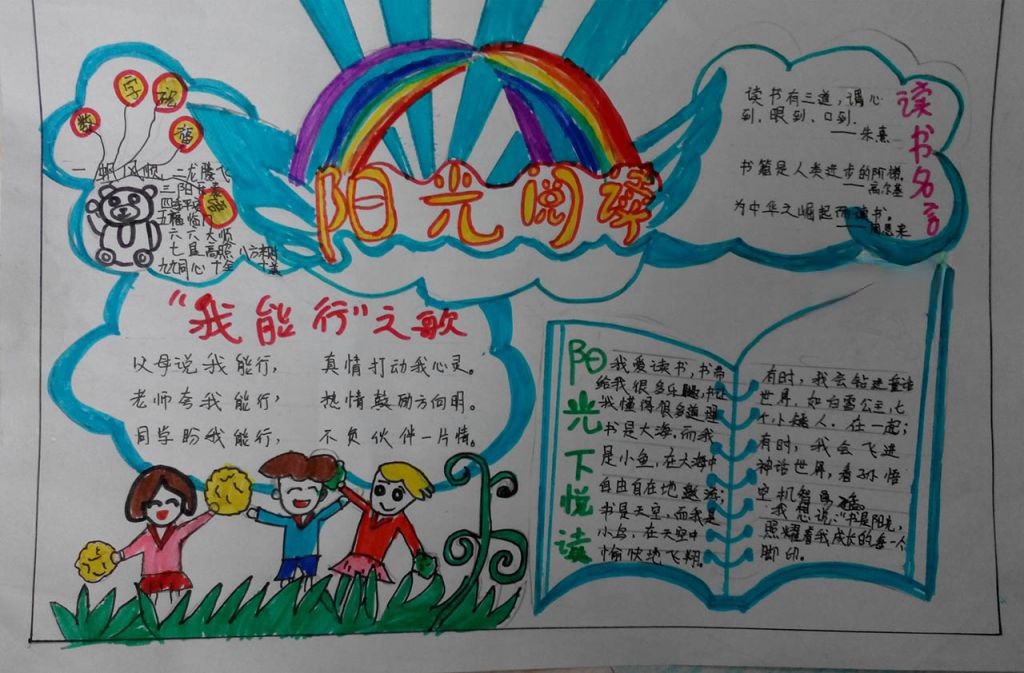 阳光阅读
数字祝福
一帆风顺 二龙腾飞
三阳开泰
四季平安
五福临门
六六大顺
七星高照 八方来财
九九同心 十全十美
读书名言
读书有三道，谓心
到、眼到、口到.
——朱熹
书籍是人类进步的阶梯
——高尔基
为中华之崛起而读书。
——周恩来
“我能行”之歌
父母说我能行， 真情打动我心灵。
老师夸我能行， 热情鼓励方向明。
同学盼我能行， 不负伙伴一片情。
阳光下悦读
我爱读书，书带
给我很多乐趣，书让
我懂得很多道理
书是大海，而我
是小鱼，在大海中
自由自在地遨游；
书是天空，而我是
小鸟，在天空中
愉快地飞翔。
有时，我会钻进童话
世界，如白雪公主，七
个小矮人．住一起；
有时，我会飞进
神话世界，看孙悟
空机智勇
我想说：“书是阳光，
照耀着我成长的每一个
脚印。